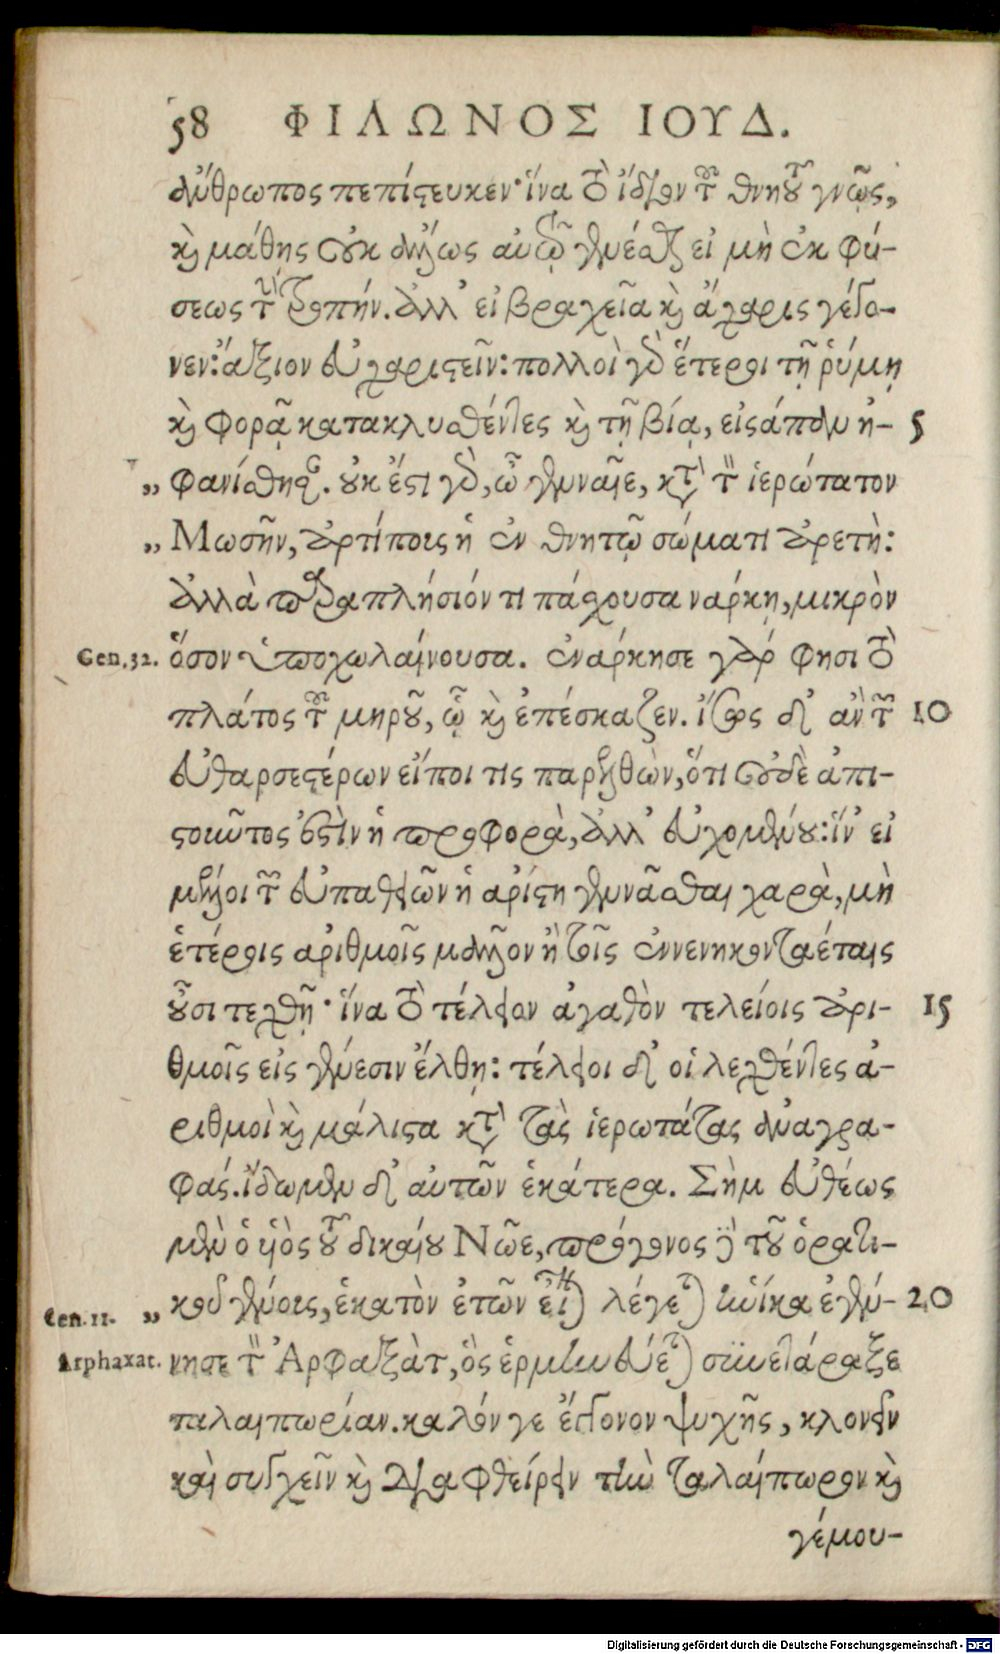 58 ΦΙΛΩΝΟΣ ΙΟΥΔ.
ἄνθρωπος πεπίστευκεν· ἵνα τὸ ἴδιον τοῦ θνητοῦ γνῷς,
καὶ μάθης οὐκ ἄλλως αὐτῷ γενέσθαι εἰ μὴ ἐκ φύ-
σεως τὴν τροπήν. ἀλλ' εἰ βραχεῖα καὶ ἄχαρις γέγο-
νεν: ἄξιον εὐχαριστεῖν: πολλοὶ γὰρ ἕτεροι τῇ ῥύμῃ
καὶ φορᾷ κατακλυσθέντες καὶ τῇ βίᾳ, εἰσάπαν ἠ- 5
„ φανίσθησαν. οὐκ ἔστι γὰρ, ὦ γενναῖε, κατὰ τὸν ἱερώτατον
„ Μωσῆν, ἀρτίποις ἡ ἐν θνητῷ σώματι ἀρετὴ:
ἀλλὰ παραπλήσιόν τι πάχουσα ναρκῃ, μικρὸν
Gen. 32. ὅσον ὑποχωλαίνουσα. ἐνάρκησε γάρ φησι τὸ
πλάτος τοῦ μηροῦ, ᾧ καὶ ἐπέσκαζεν. ἴσως δ' ἂν τῶν 10
εὐθαρσεστέρων εἴποι τις παρελθὼν, ὅτι οὐδὲ ἀπι-
στοῦντος ἐστὶν ἡ προφορὰ, ἀλλ' εὐχομένου: ἵν' εἰ
μέλλοι τῶν εὐπαθειῶν ἡ αρίστη γεννᾶσθαι χαρὰ, μὴ
ἑτέροις αριθμοῖς μᾶλλον ἢ τοῖς ἐννενηκονταέταις
οὖσι τεχθῇ· ἵνα τὸ τέλειον ἀγαθὸν τελείοις ἀρι- 15
θμοῖς εἰς γένεσιν ἔλθῃ: τέλειοι δ' οἱ λεχθέντες ἀ-
ριθμοὶ καὶ μάλιστα κατὰ τὰς ἱερωτάτας ἀναγρα-
φάς. ἴδωμεν δ' αὐτῶν ἑκάτερα. Σὴμ εὐθέως
μὲν ὁ υἱὸς τοῦ δικαίου Νῶε, πρόγονος δὲ τοῦ ὁρατι-
Gen. 11. „ κοῦ γένους, ἑκατὸν ἐτῶν εἶναι λέγεται ἡνίκα ἐγέν- 20
Arphaxat. νησε τὸν Ἀρφαξὰτ, ὃς ἑρμηνεύεται συνετάραξε
ταλαιπωρίαν. καλόν γε ἔγγονον ψυχῆς, κλονεῖν
καὶ συγχεῖν καὶ διαφθείρειν τὴν ταλαίπωρον καὶ
γέμου-
Digitalisierung gefördert durch die Deutsche Forschungsgemeinschaft - DFG